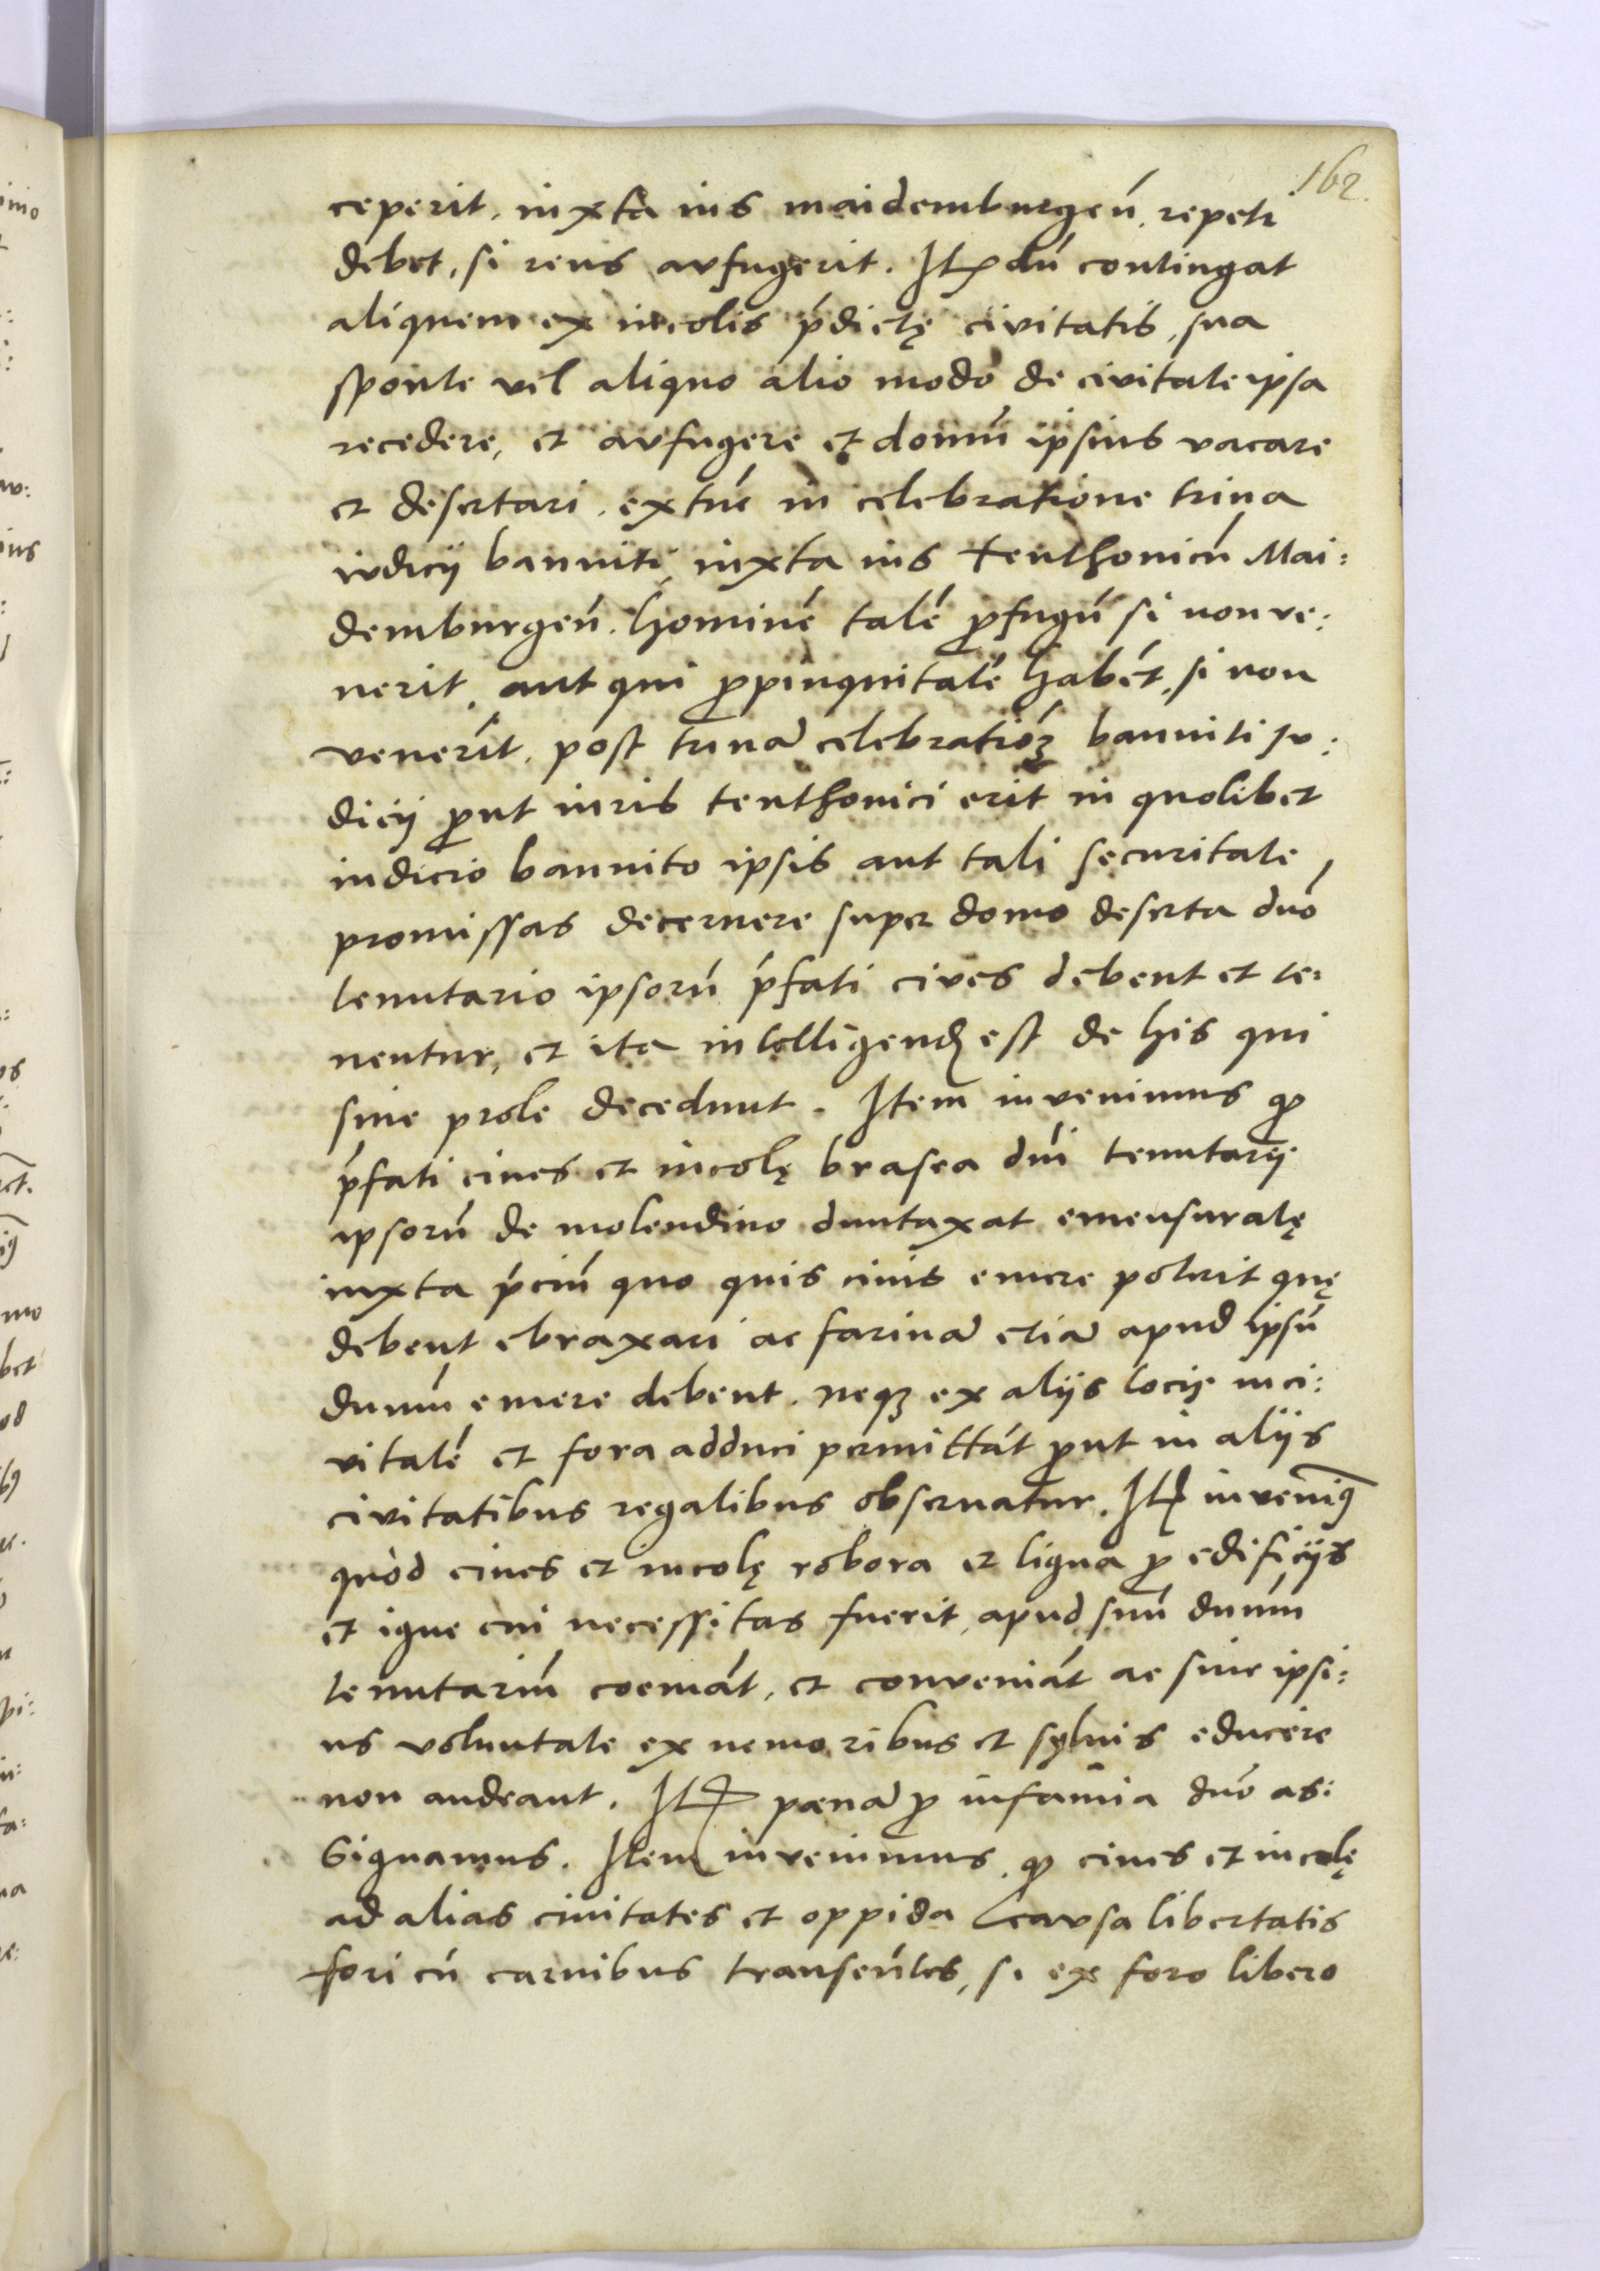 162.
ceperit, iuxta ius maidemburgeń. repeti
debet, si reus aufugerit. Itę dū contingat
aliquem ex incolis ṕdictę civitatis, sua
sponte vel aliquo alio modo de civitate ipsa
recedere, et aufugere et domū ipsius vacare
et desertari, extūc in celebratione trina
iudicij banniti, iuxta ius teuthonicū Mai:
demburgeń. hominē talē ꝓfugū si non ve:
nerit, aut qui ꝓpinquitatē habēt, si non
venerīt, post trinā celebratiōꝫ banniti Ju:
dicij ꝓut iuris teuthonici erit in quolibet
iudicio bannito ipsis aut tali securitate
promissas decernere super domo deserta dnō
tenutario ipsorū ṕfati cives debent et te:
nentur, et ita intelligendꝭ est de his qui
sine prole decedunt. Item invenimus ꝙ
ṕfati ciues et incolę brasea dnī tenutarij
ipsorū de molendino duntaxat emensuratę
iuxta ṕciū quo quis ciuis emere poterit quę
debent ebraxari ac farinā etiā apud ipsū
dnnm̄ emere debent. neqꝫ ex alijs locis in ci:
vitatē et fora adduci permittāt ꝓut in alijs
civitatibus regalibus obseruatur. Itꝭ invenimꝰ
quòd ciues et incolę robora et ligna ꝓ edificijs
et igne cui necessitas fuerit, apud suū dnnm̄
tenutariū coemāt, et conveniāt ac sine ipsi:
us voluntate ex nemoribus et syluis educere
non audeant. Itꝭ pœnā ꝓ infamia dnō as:
signamus. Item invenimus, ꝙ ciues et incolę
ad alias ciuitates et oppida causa libertatis
fori cū carnibus transeūtes, si ex foro libero